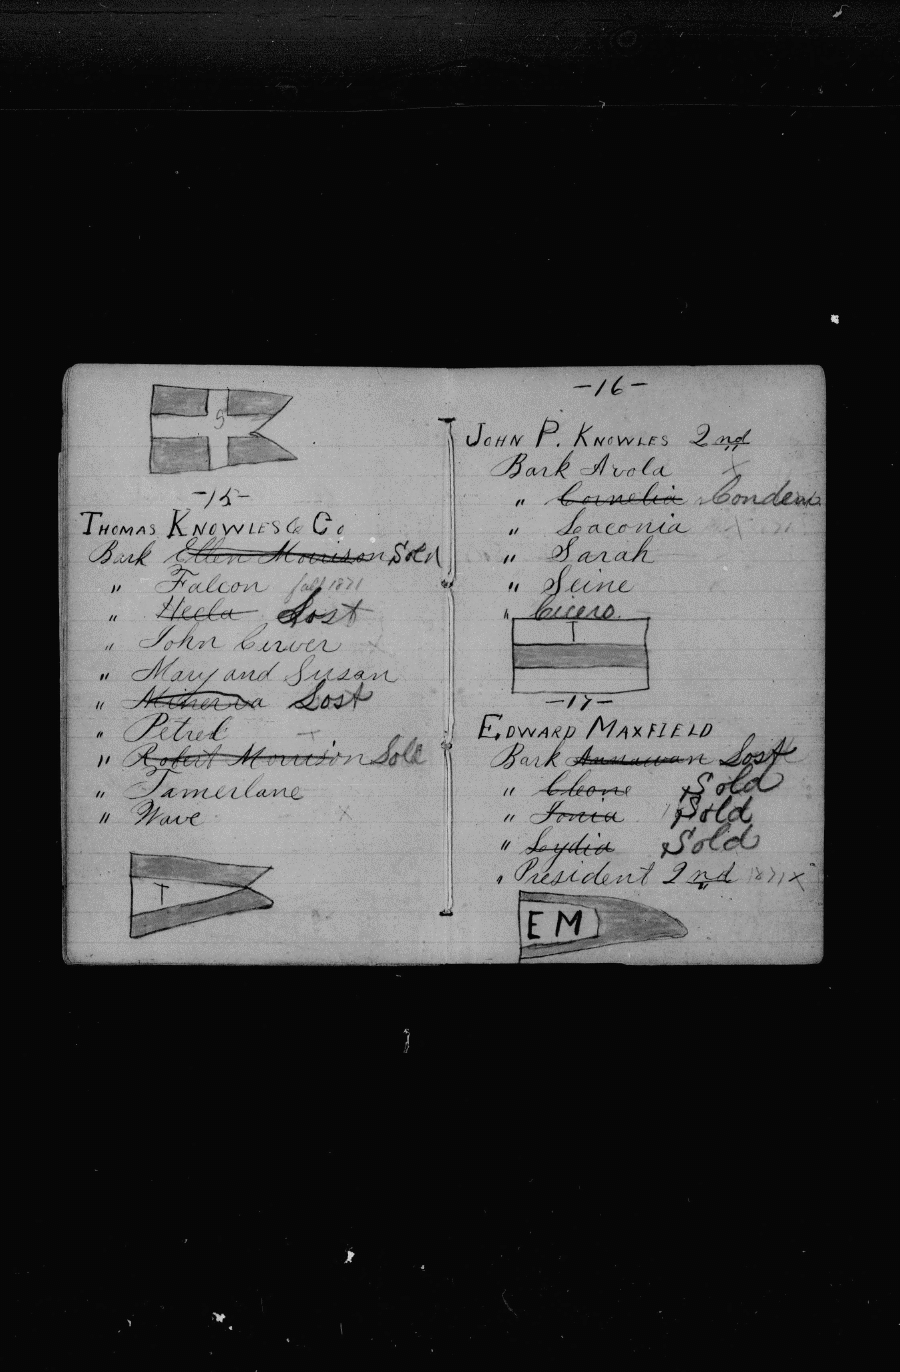 S
-15-
THOMAS KNOWLES & Co
Bark Ellen Morrison Sold
" Falcon fall 1871
" Hecla Lost
" John Carver x
" Mary and Susan
" Minerva Lost
" Petrel x
" Robert Morrison Sold
" Tamerlane
" Wave x
T
-16-
JOHN P. KNOWLES 2nd
Bark Avola x
" Cornelia Condem
" Laconia x
" Sarah
" Seine
" Cicero.
T
-17-
EDWARD MAXFIELD
Bark Annawan Lost
" Cleone Sold
" Ionia Sold
" Lydia Sold
" President 2nd 1871 x
E M